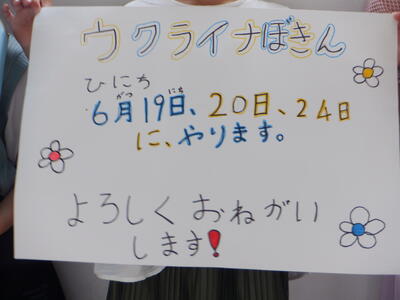 ウクライナぼきん
ひにち
6月19日、20日、24日
がつ にち
に、やります。
よろしくおねがい
します!